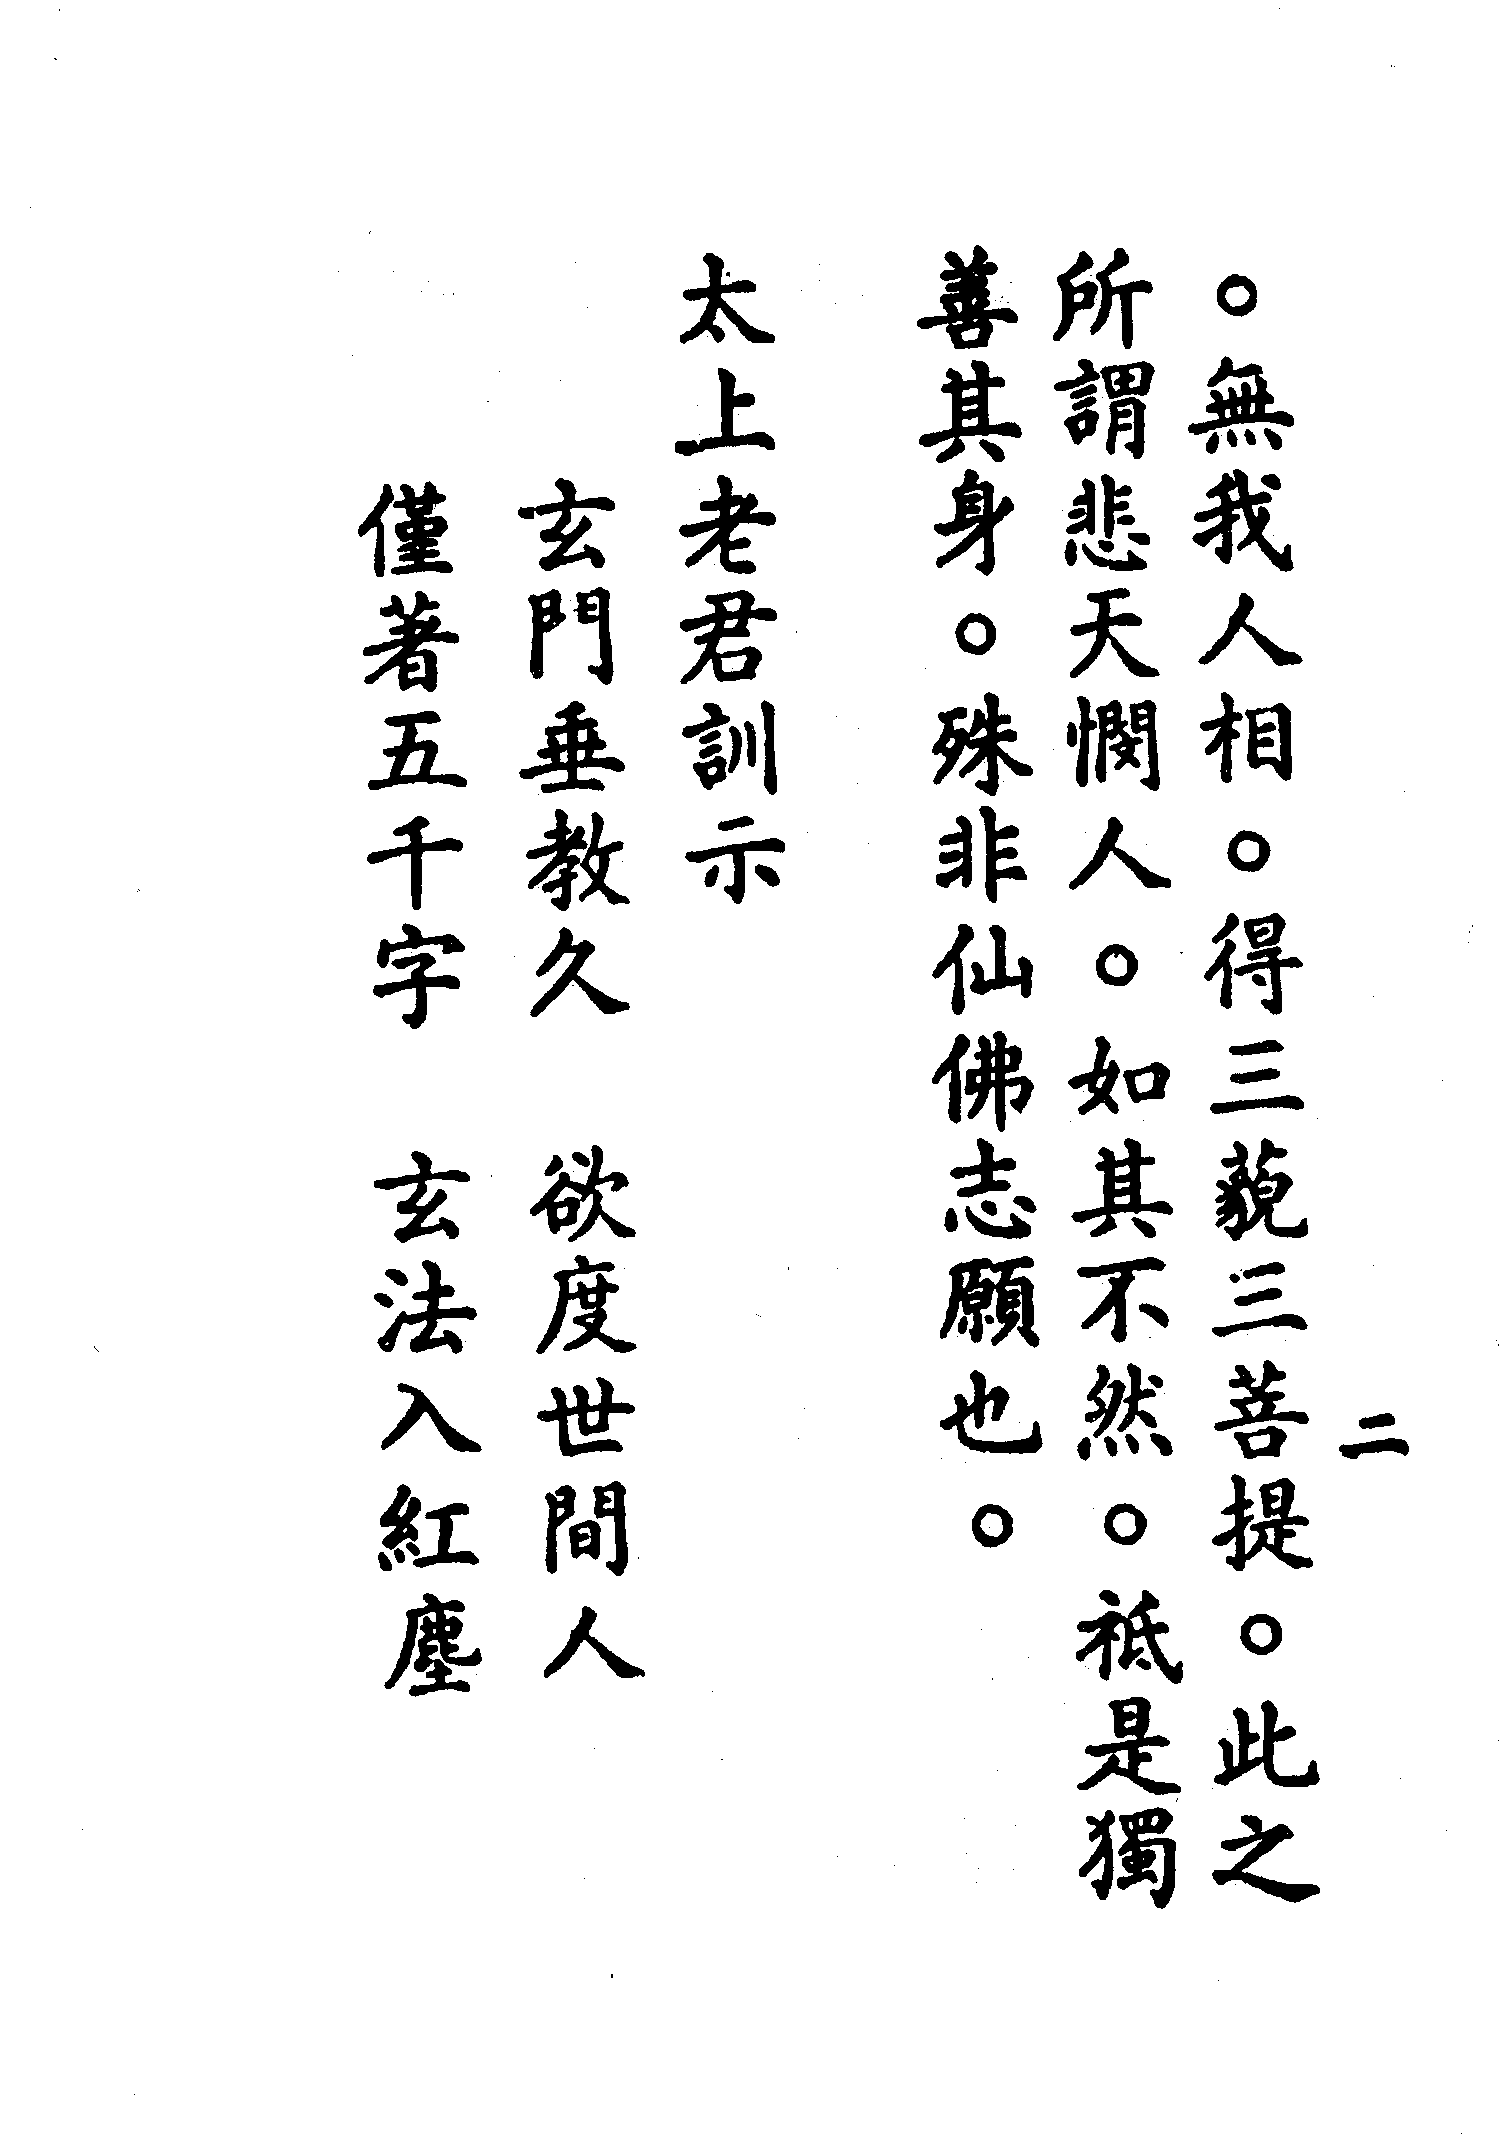 二
。無我人相。得三藐三菩提。此之
所謂悲天憫人。如其不然。祗是獨
善其身。殊非仙佛志願也。
太上老君訓示
玄門垂教久　欲度世間人
僅著五千字　玄法入紅塵